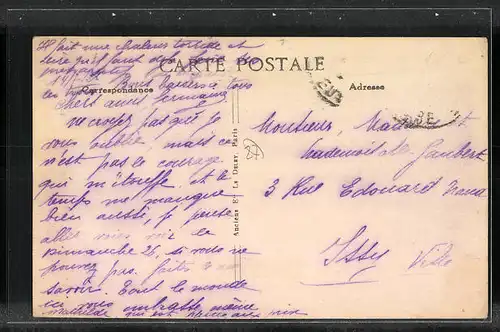 Il fait une chaleur torride et
CARTE POSTALE
Correspondance
Adresse
Bons baisers à tous
chers amis
ne croyez pas que je
vous oublie mais ce
n'est pas le courage
qui m'étouffe et le
temps me manque
bien aussi, je pense
aller vous voir le
Dimanche 26, si vous ne
pouvez pas faites le moi
savoir. Tout le monde
ici vous embrasse même
Mathilde qui est
Monsieur, Madame et
Mademoiselle Gaubert
3 Rue Edouard
Issy
Ville
27
Anciens Et. Le Deley, Paris